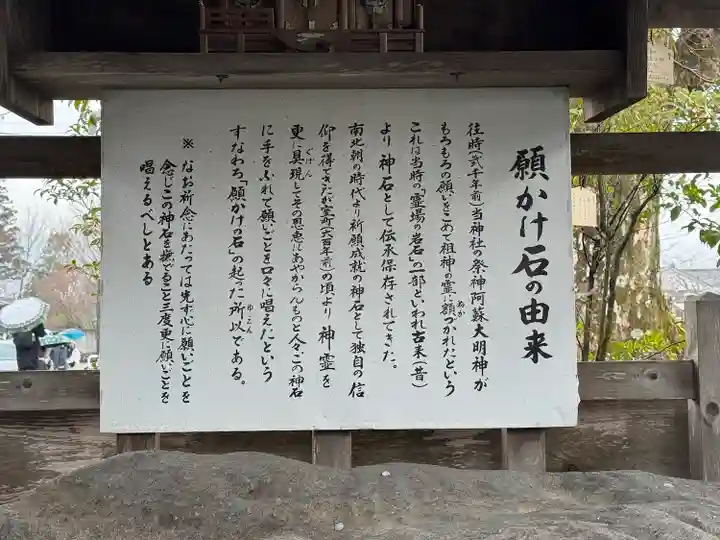 願かけ石の由来
往時(弐千年前)当神社の祭神阿蘇大明神が
もろもろの願いをこめて祖神の霊に額づかれたという
ぬか
これは当時の「霊場の岩石」の一部といわれ古来(昔)
より神石として伝承保存されてきた。
南北朝の時代より祈願成就の神石として独自の信
仰を得てきたが室町(六百年前)の頃より神霊を
更に具現してその恩恵にあやからんものと人々この神石
ぐげん
に手をふれて願いごとを口々に唱えたという
すなわち「願かけの石」の起った所以である。
ゆえん
※なお祈念にあたっては先ず心に願いごとを
念じこの神石を撫でること三度更に願いごとを
唱えるべしとある